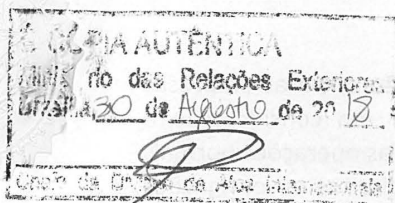 É CÓPIA AUTÊNTICA
Ministério das Relações Exteriores
Brasília, 30 de Agosto de 20 18
Chefe da Divisão de Atos Internacionais